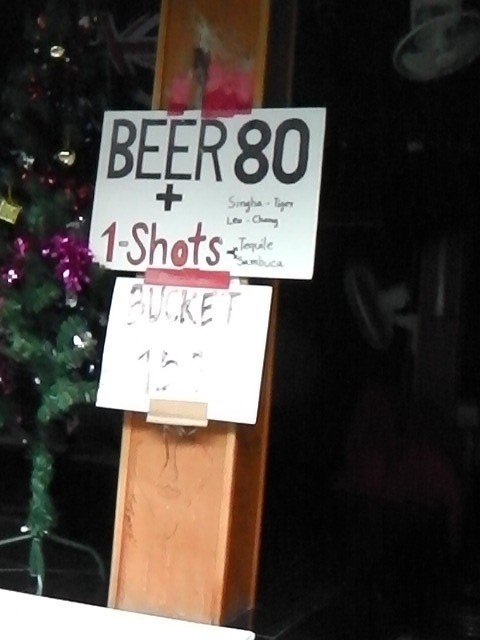 BEER 80
+
Singha - Tiger
Leo - Chang
1-Shots
Tequile
Sambuca
BUCKET